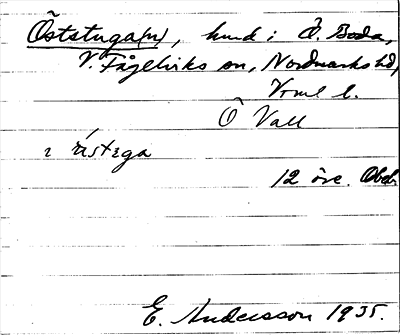 Öststuga(n), hund i Ö. Boda,
V. Fågelviks sn, Nordmarks hd,
Vrml l.
Ö Vall
ı ŕ́stɜga
12 öre. Obeb.
E. Andersson 1935.